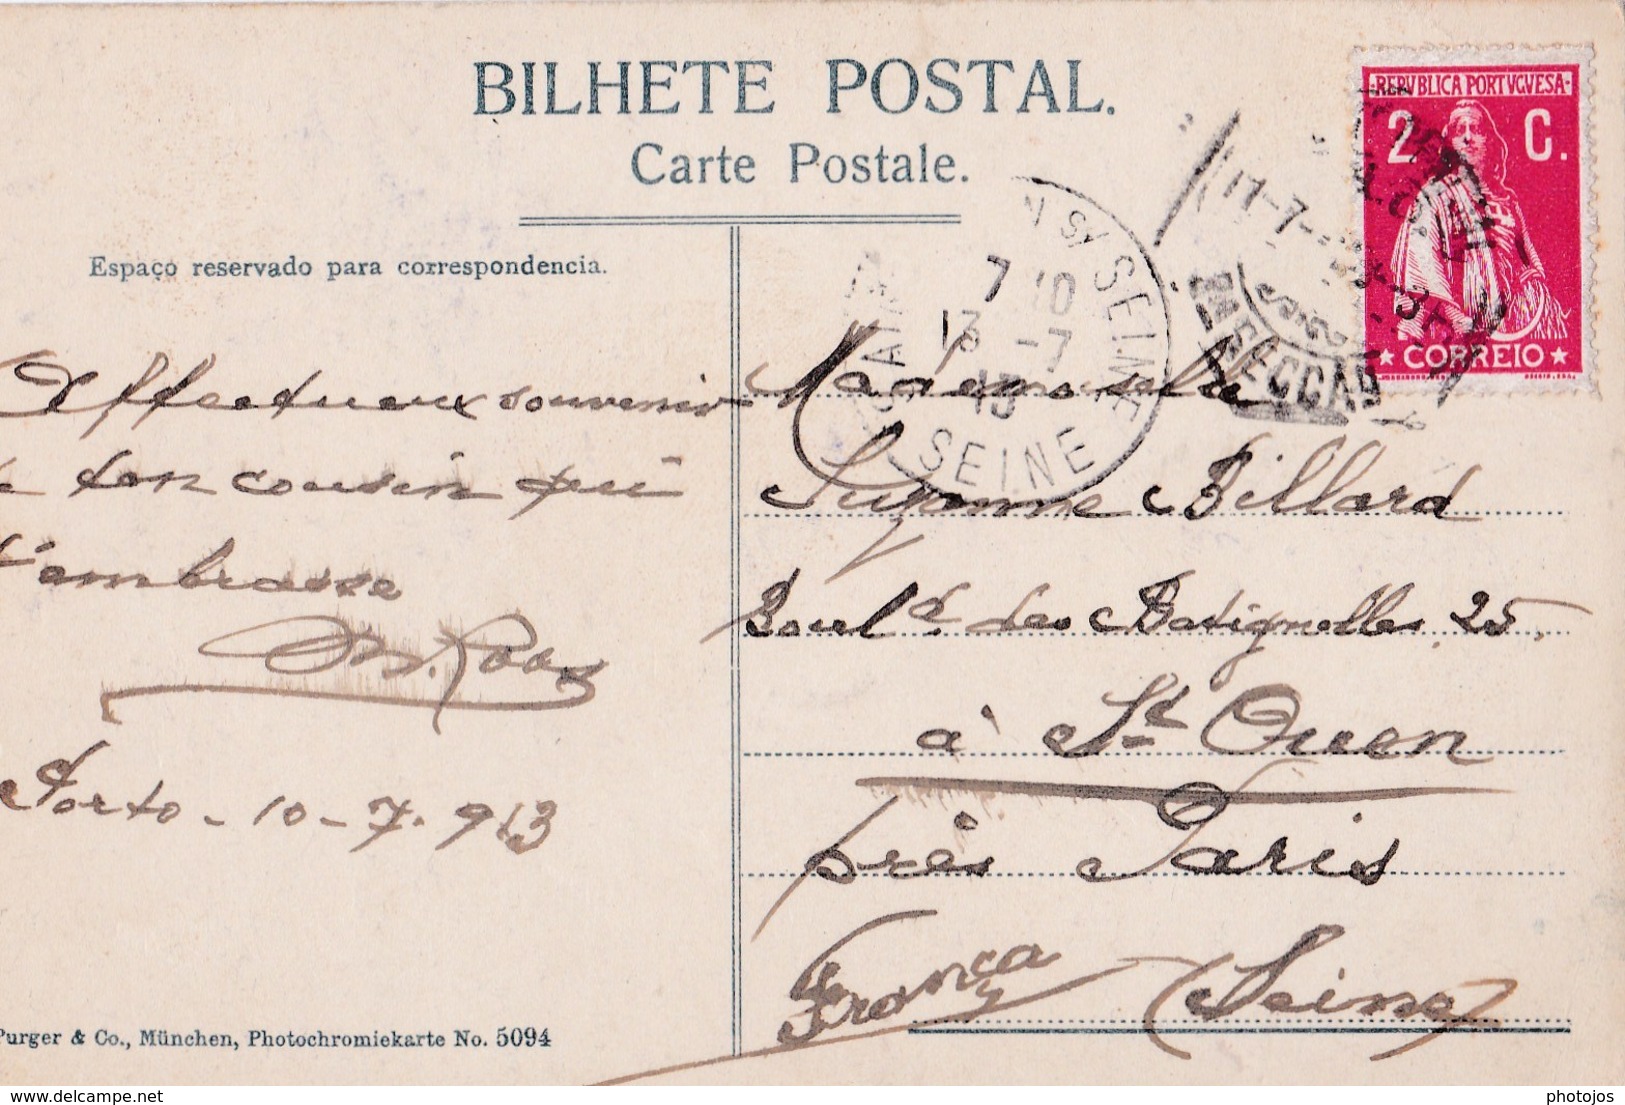 BILHETE POSTAL.
Carte Postale.
REPVBLICA PORTVGVESA
2 C.
CORREIO
Espaço reservado para correspondencia.
7 10
13 -7
13
SEINE
11-7-
Affectueux souvenir
ton cousin qui
t'embrasse
Porto - 10-7-913
Mademoiselle
Suzanne Billard
Boul.d des Batignolles 25,
à St Ouen
près Paris
França (Seine)
Purger & Co., München, Photochromiekarte No. 5094
delcampe.net
photojos